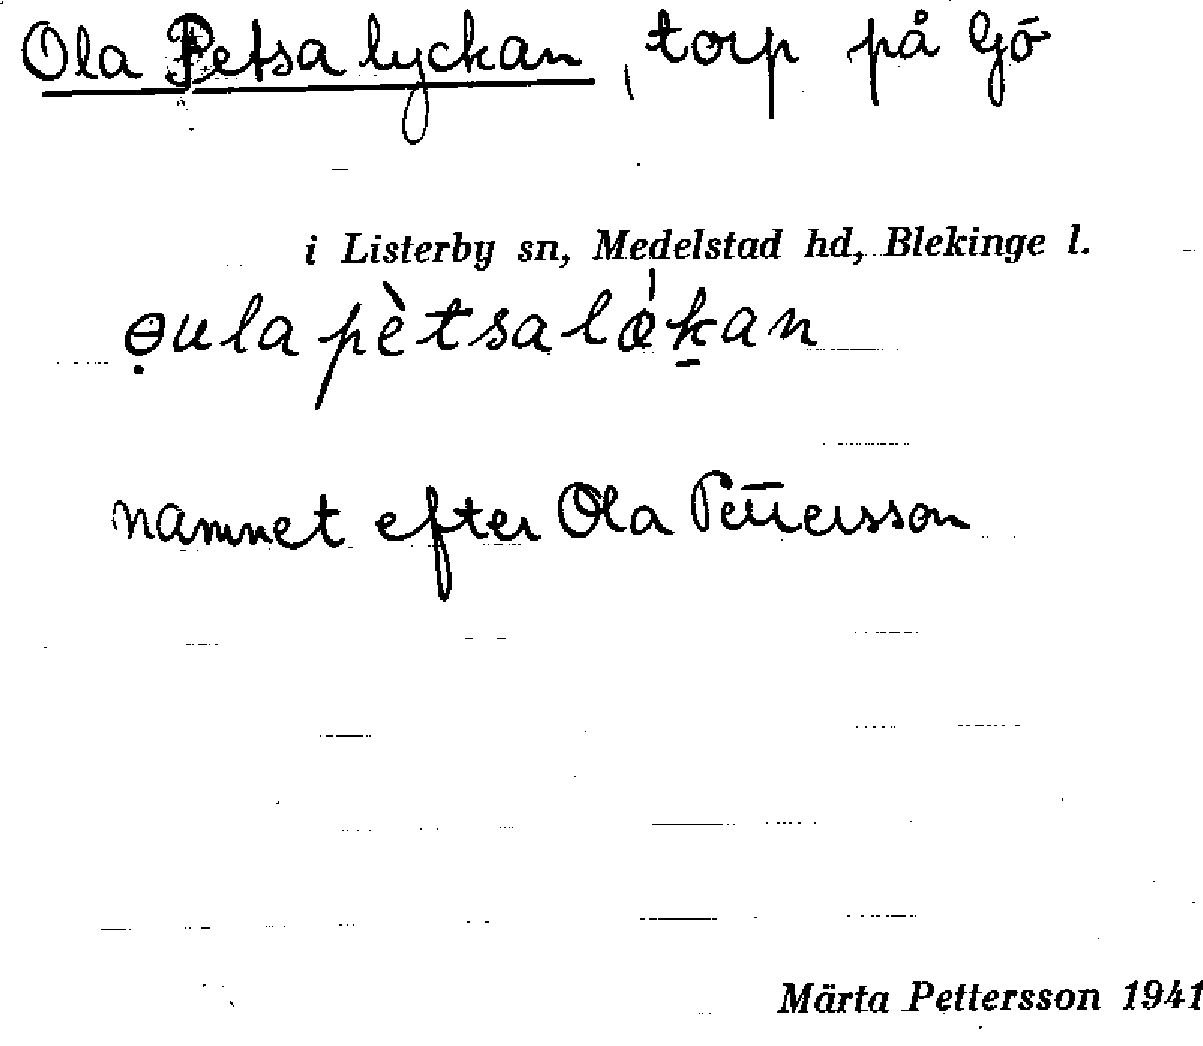 Ola Petsa lyckan, torp på Gö
i Listerby sn, Medelstad hd, Blekinge l.
ө̣ula pètsalǿḵan
namnet efter Ola Pettersson
Märta Pettersson 1941